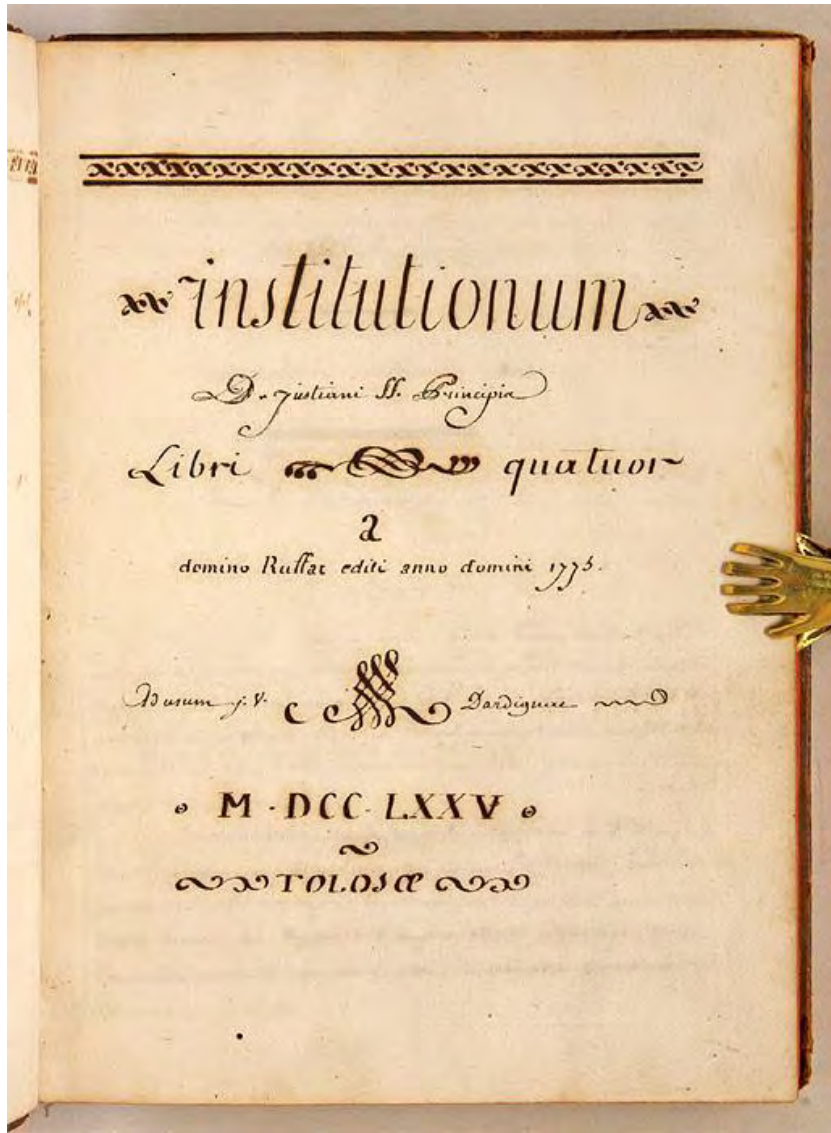 institutionum
D. Justiani SS. Principia
Libri quatuor
a
domino Ruffat editi anno domini 1775.
Ad usum j. V. Dardignac
M · DCC · LXXV
TOLOSÆ